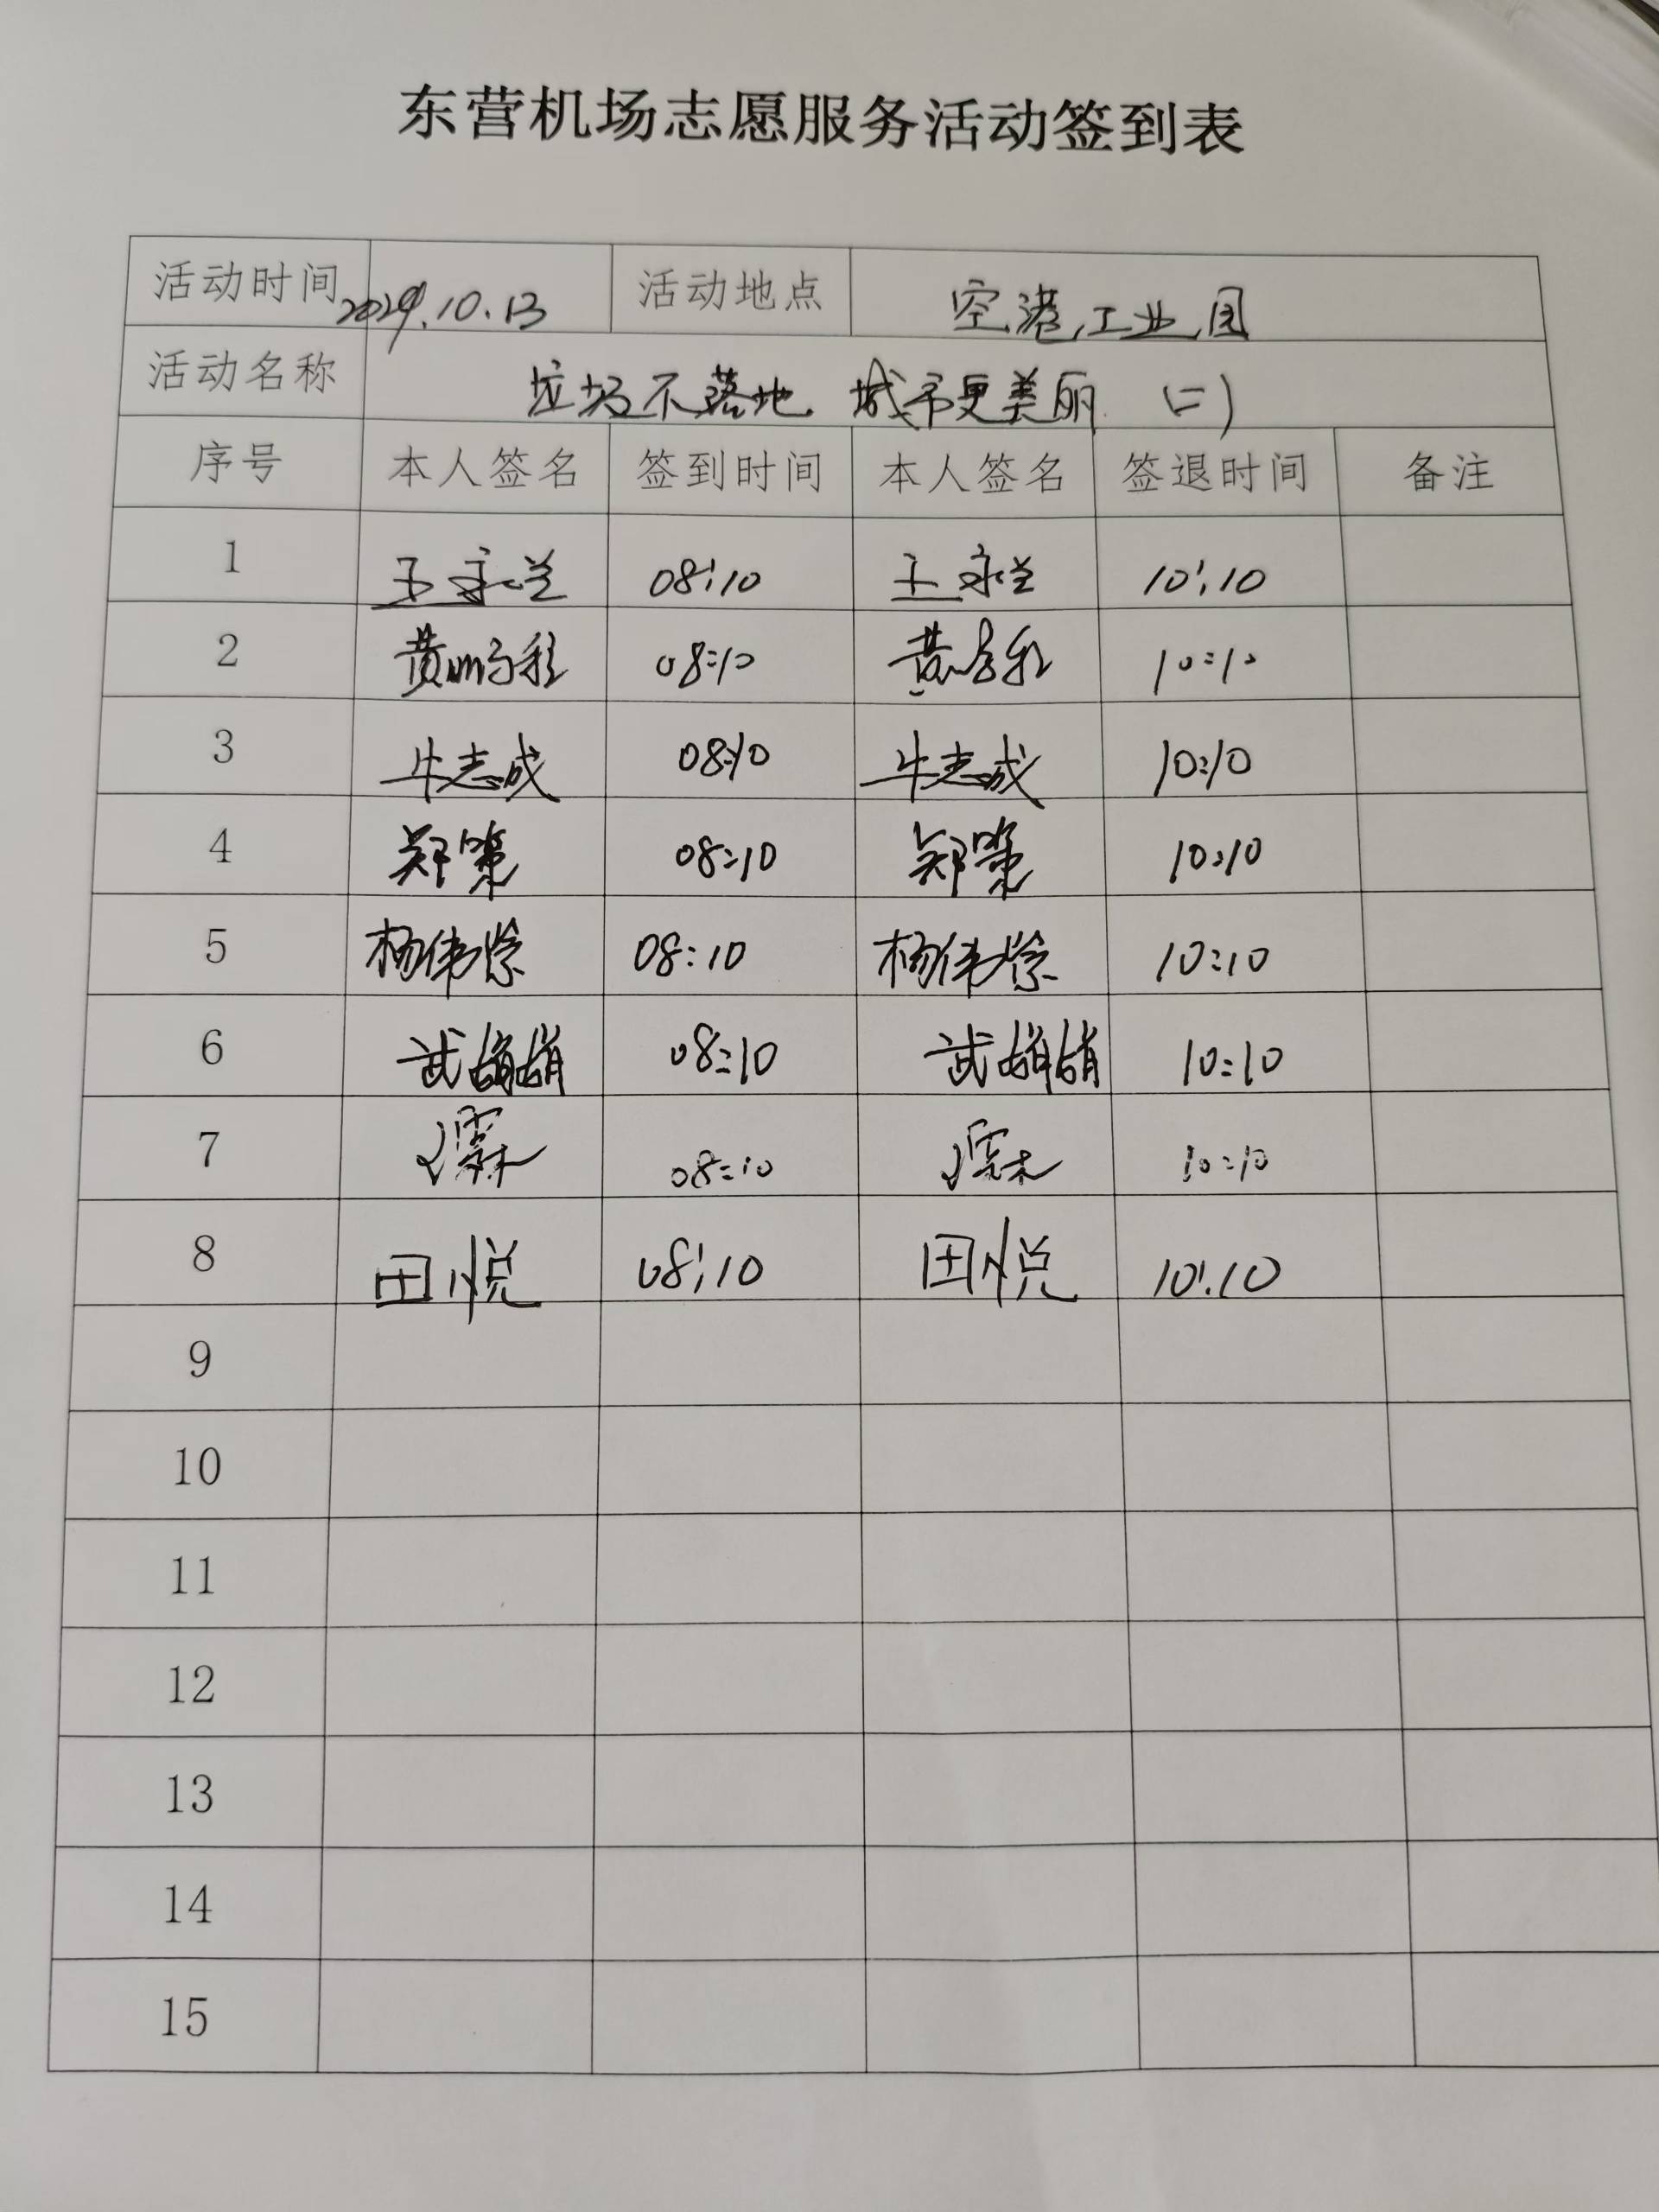 东营机场志愿服务活动签到表
活动时间 2024.10.13 活动地点 空港工业园
活动名称 垃圾不落地 城市更美丽 (二)
序号 本人签名 签到时间 本人签名 签退时间 备注
1 王永兰 08:10 王永兰 10:10
2 黄 08:10 黄 10:10
3 牛志成 08:10 牛志成 10:10
4 郑策 08:10 郑策 10:10
5 杨伟 08:10 杨伟 10:10
6 武娟娟 08:10 武娟娟 10:10
7 08:10 10:10
8 田悦 08:10 田悦 10:10
9
10
11
12
13
14
15